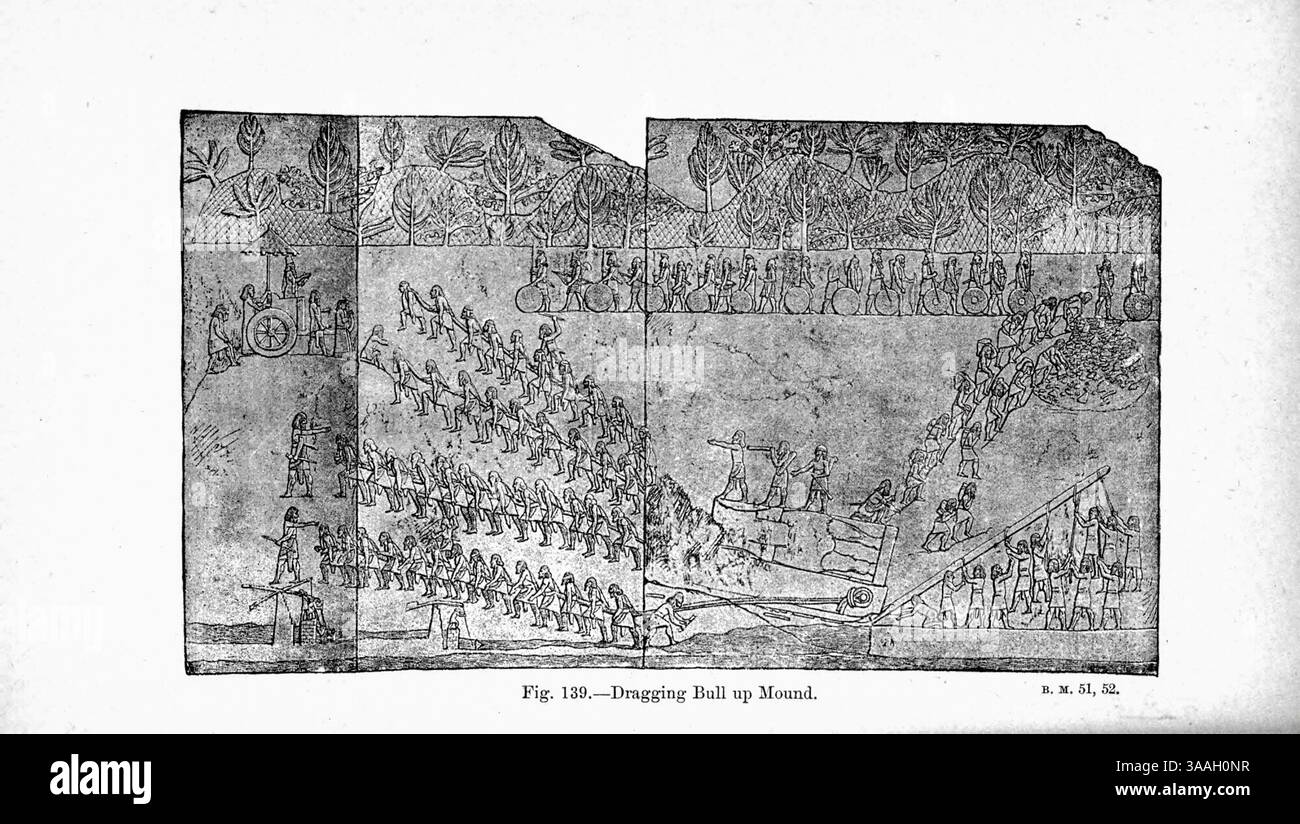 Fig. 139.—Dragging Bull up Mound.
B. M. 51, 52.
alamy
Image ID: 3AAH0NR
www.alamy.com